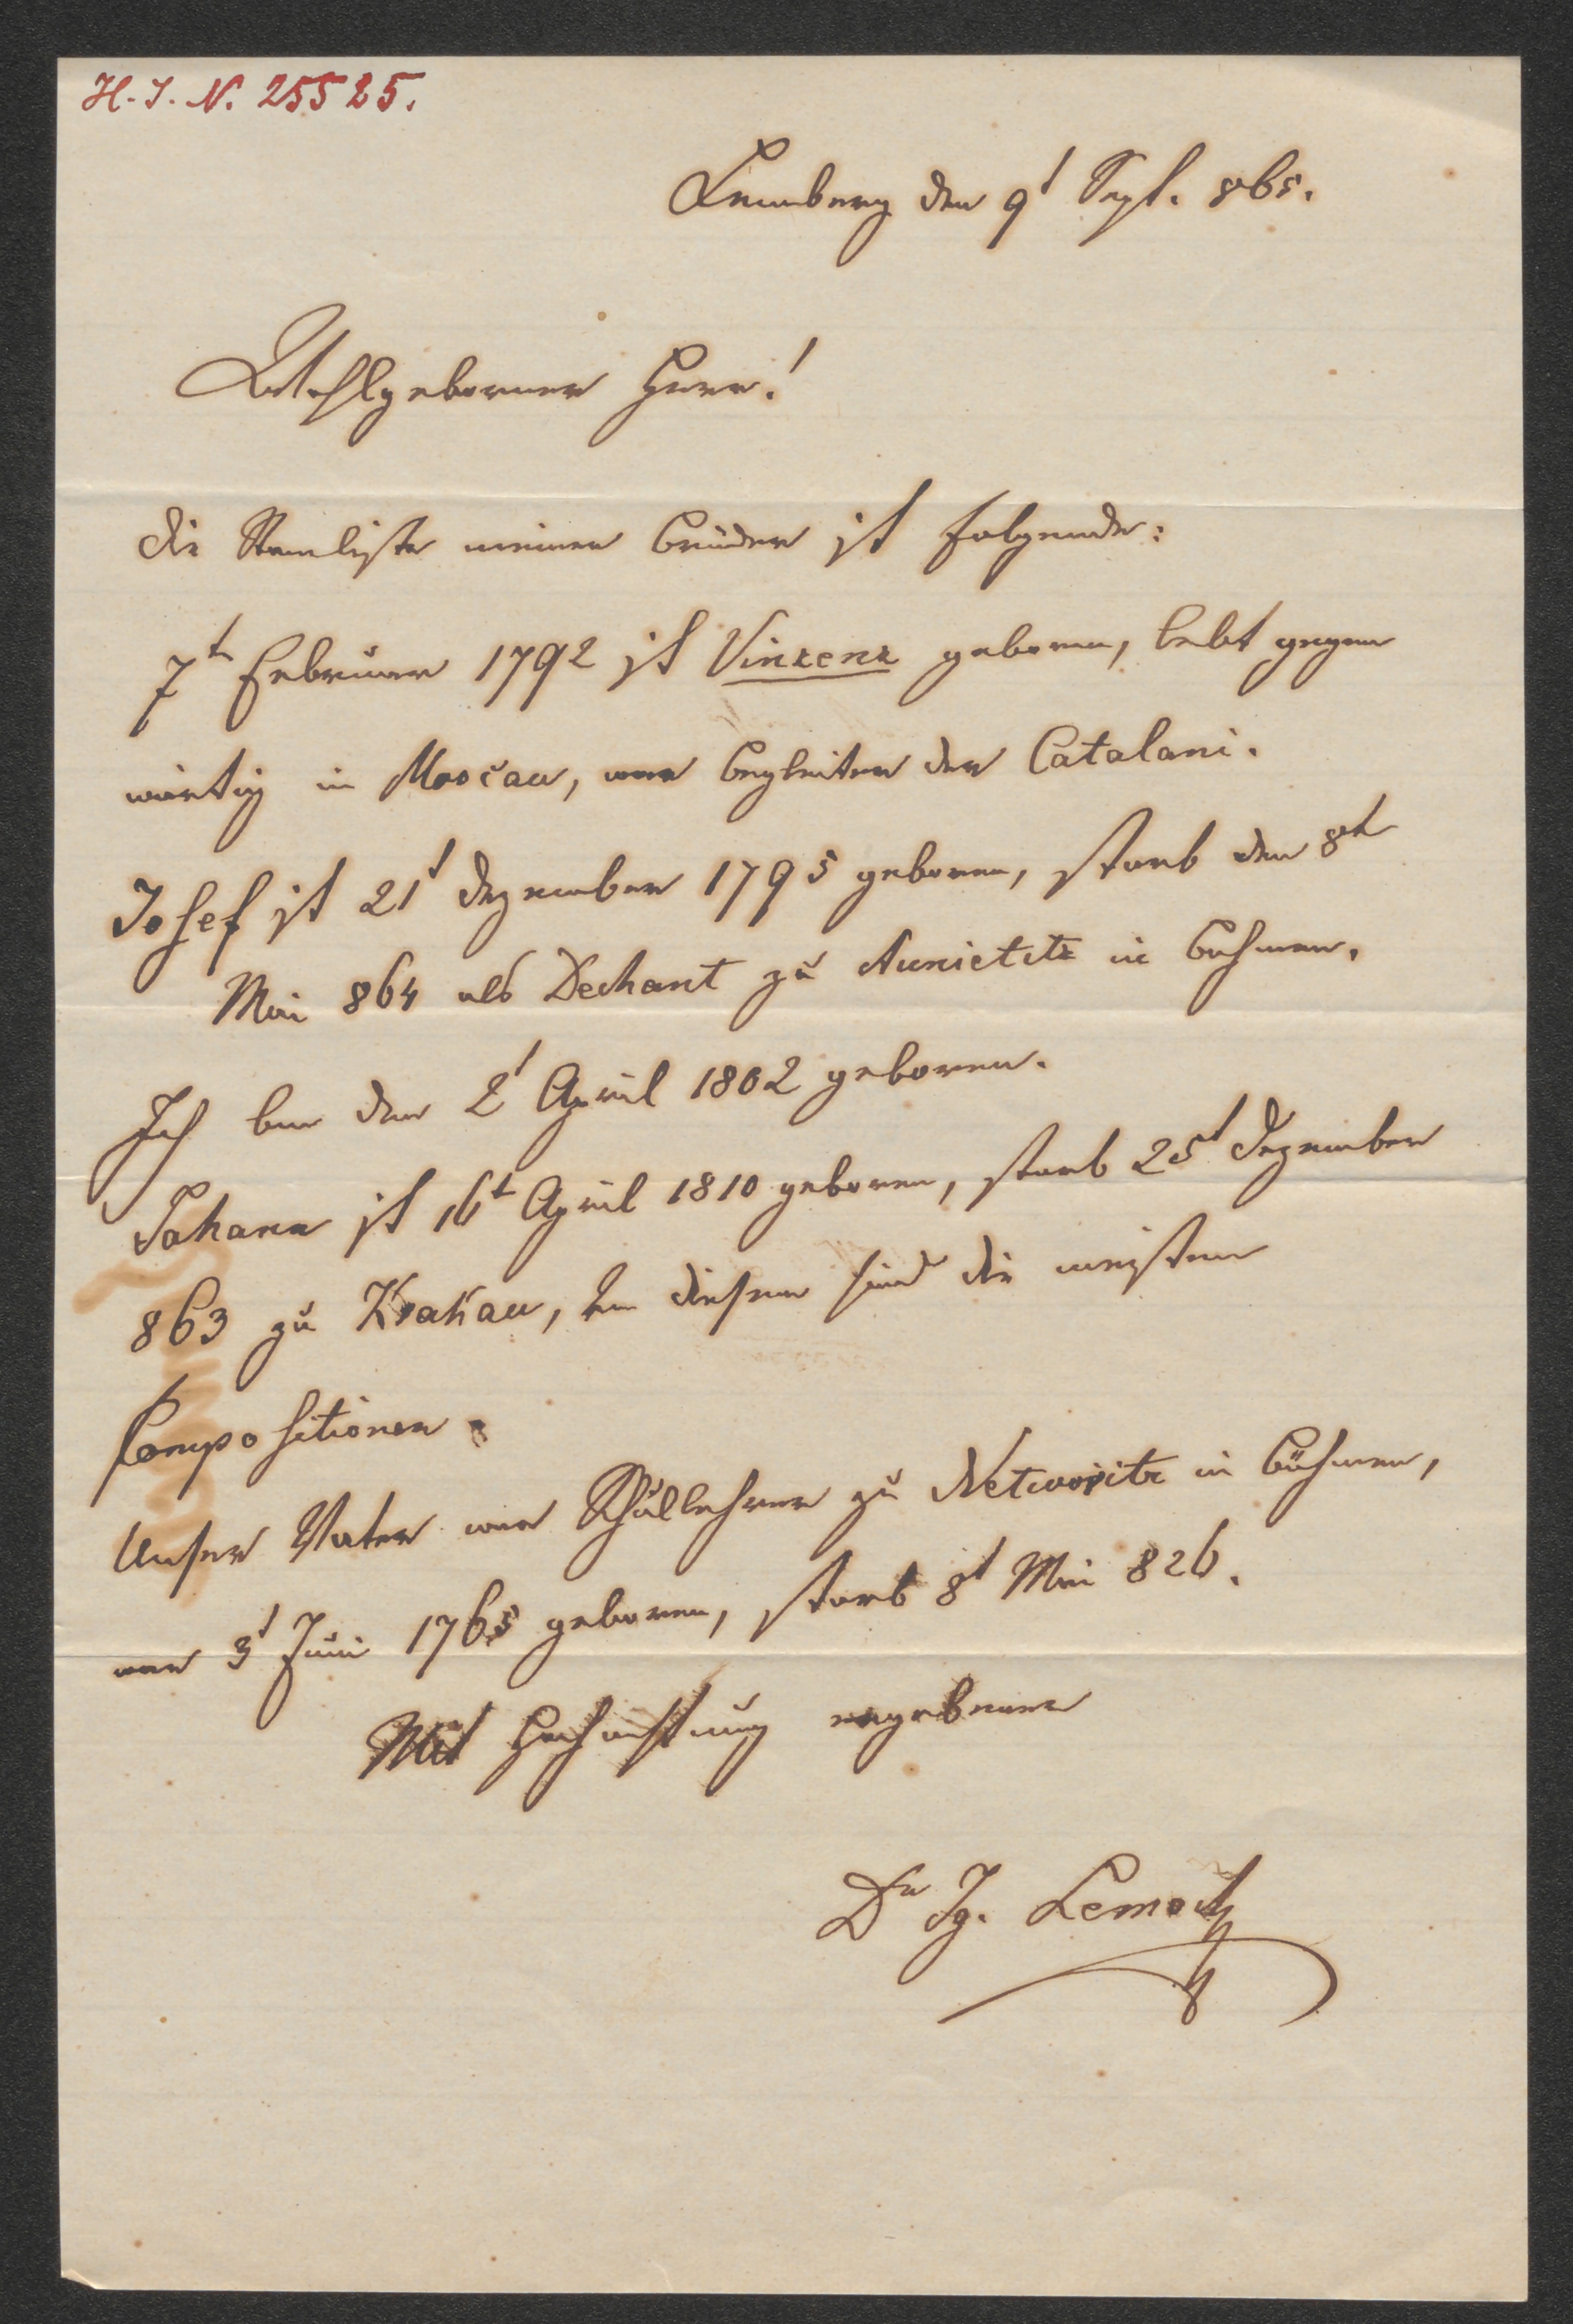 H. I. N. 25525.
Lemberg den 9t Sept. 865.
Wohlgeborner Herr!
Die Stamliste meiner Brüder ist folgende:
7t Februar 1792 ist Vinzenz geboren, lebt gegen
wärtig in Moscau, war Begleiter der Catalani.
Josef ist 21t Dezember 1795 geboren, starb den 8t
Mai 864 als Dechant zu Aunietitz in Böhmen.
Ich bin den 2t April 1802 geboren.
Johann ist 16t April 1810 geboren, starb 25t Dezember
863 zu Krakau, von diesem sind die meisten
Compositionen.
Unser Vater war Schullehrer zu Networitz in Böhmen,
war 3t Juni 1765 geboren, starb 8t Mai 826.
Mit Hochachtung ergebener
Dr Ig. Lemoch